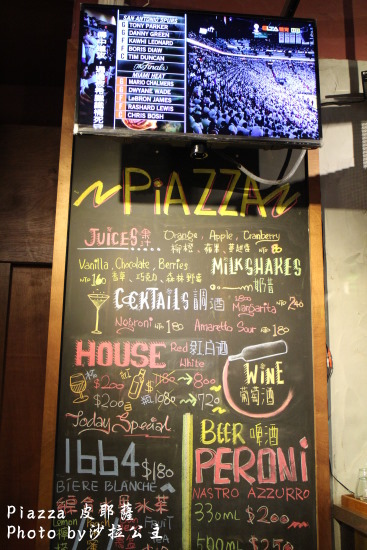 SAN ANTONIO SPURS
G TONY PARKER
G DANNY GREEN
F KAWHI LEONARD
F BORIS DIAW
C TIM DUNCAN
The Finals
MIAMI HEAT
G MARIO CHALMERS
G DWYANE WADE
F LeBRON JAMES
F RASHARD LEWIS
C CHRIS BOSH
PiAZZA
JUiCES 果汁
Orange, Apple, Cranberry
柳橙、蘋果、蔓越莓 NT 80
Vanilla, Chocolate, Berries
NT 160 香草、巧克力、森林野莓
MiLKSHAKES
奶昔
COCKTAiLS 調酒
Margarita NT 240
Negroni NT 180 Amaretto Sour NT 180
HOUSE Red White 紅白酒
WiNE
葡萄酒
杯 $200 → 800
$200 瓶 1080 → 720
Today Special
BEER 啤酒
1664 $180
BIERE BLANCHE
PERONI
NASTRO AZZURRO
330ml $200
500ml $250
Piazza 皮耶薩
Photo by沙拉公主